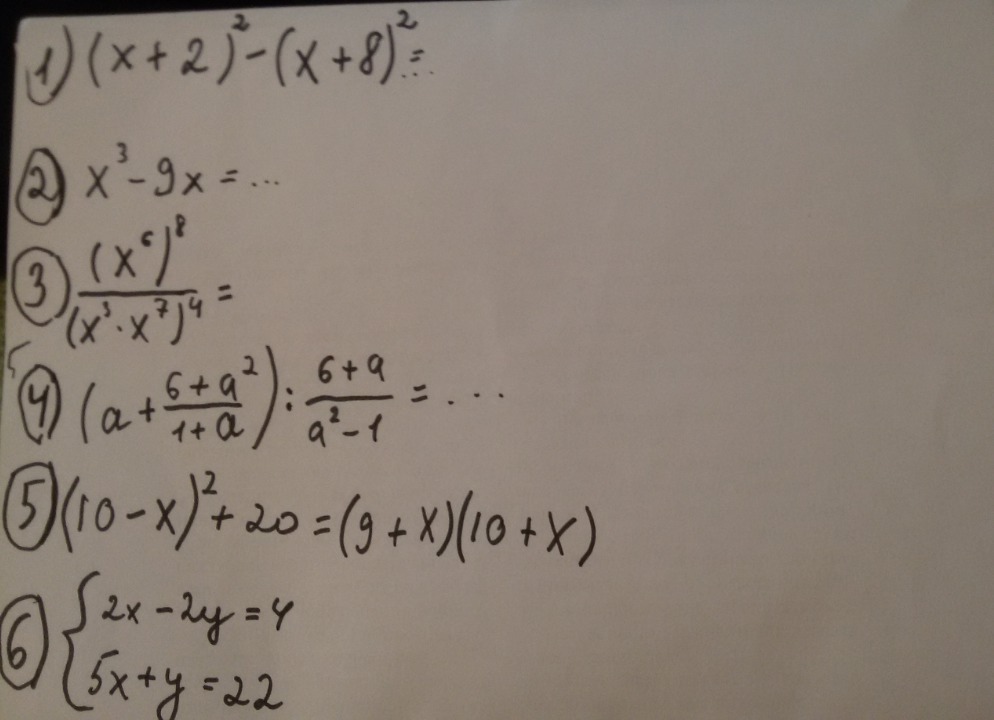 1) (x+2)² - (x+8)² = ...
2) x³ - 9x = ...
3) (x⁶)⁸ / (x³ · x⁷)⁴ =
4) (a + (6+a²)/(1+a)) : (6+a)/(a²-1) = ...
5) (10-x)² + 20 = (9+x)(10+x)
6) { 2x - 2y = 4
5x + y = 22